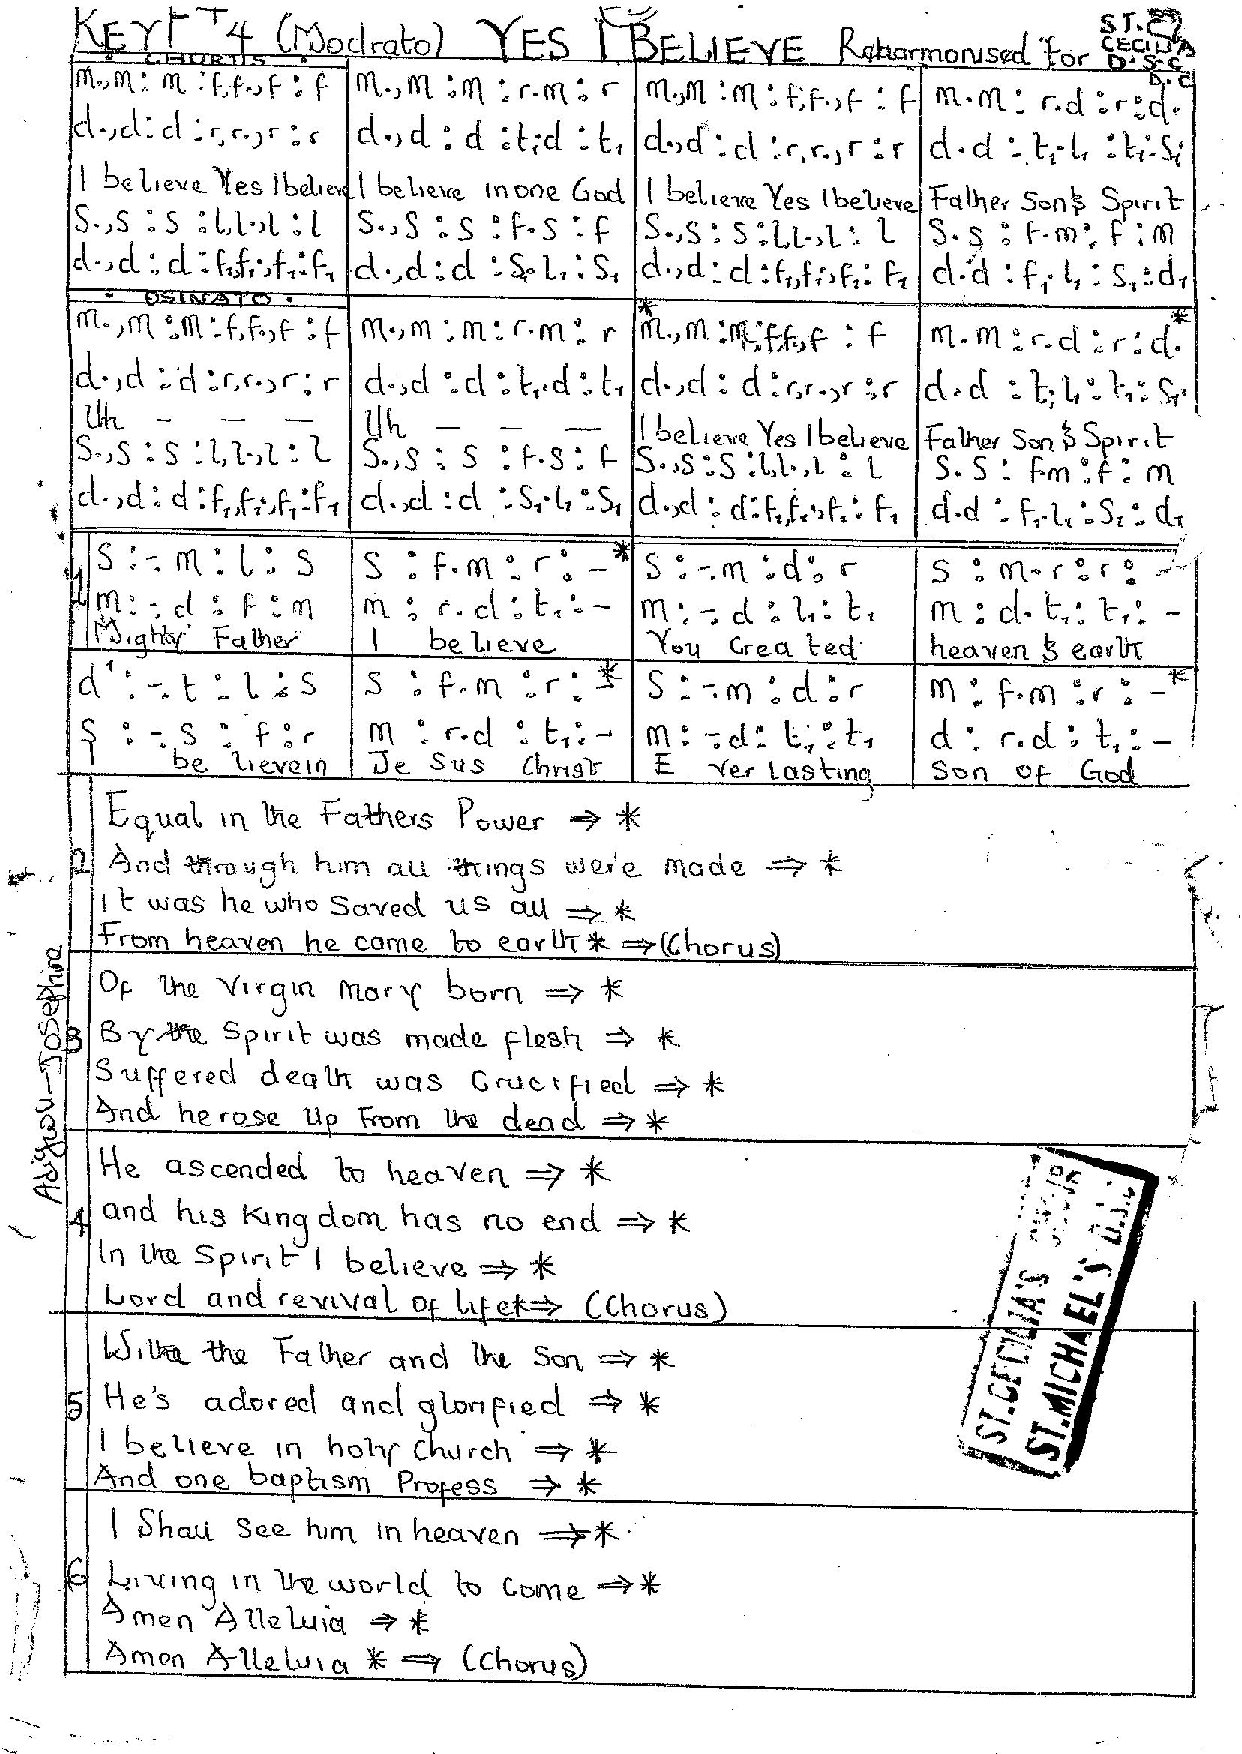 KEY F T4 (Modrato) YES I BELIEVE Reharmonised for ST. CECILIA D.S.C
D.C
· CHORUS ·
m.,m : m : f,f.,f : f | m.,m : m : r.m : r | m.,m : m : f,f.,f : f | m.m : r.d : r : d.
d.,d : d : r,r.,r : r | d.,d : d : t,d : t, | d.,d : d : r,r.,r : r | d.d : t,.l, : t, : s,
I believe Yes I believe | I believe in one God | I believe Yes I believe | Father Son & Spirit
S.,S : S : l,l.,l : l | S.,S : S : f.S : f | S.,S : S : l,l.,l : l | S.S : f.m : f : m
d.,d : d : f,f,.,f, : f, | d.,d : d : S,.l, : S, | d.,d : d : f,f,.,f, : f, | d.d : f,.l, : S, : d,
· OSINATO ·
m.,m : m : f,f.,f : f | m.,m : m : r.m : r | * m.,m : m : f,f.,f : f | m.m : r.d : r : d. *
d.,d : d : r,r.,r : r | d.,d : d : t,.d : t, | d.,d : d : r,r.,r : r | d.d : t,.l, : t, : S,
Uh – – – | Uh – – – | I believe Yes I believe | Father Son & Spirit
S.,S : S : l,l.,l : l | S.,S : S : f.S : f | S.,S : S : l,l.,l : l | S.S : f.m : f : m
d.,d : d : f,f,.,f, : f, | d.,d : d : S,.l, : S, | d.,d : d : f,f,.,f, : f, | d.d : f,.l, : S, : d,
1 S : -.m : l : S | S : f.m : r : – * | S : -.m : d : r | S : m.r : r : –
m : -.d : f : m | m : r.d : t, : – | m : -.d : l, : t, | m : d.t, : t, : –
Mighty Father | I believe | You Crea ted | heaven & earth
d' : -.t : l : S | S : f.m : r : – * | S : -.m : d : r | m : f.m : r : – *
S : -.S : f : r | m : r.d : t, : – | m : -.d : t, : t, | d : r.d : t, : –
I be lievein | Je Sus Christ | E ver lasting | Son of God
Equal in the Fathers Power ⇒ *
2 And through him all things were made ⇒ *
It was he who Saved us all ⇒ *
From heaven he came to earth * ⇒ (Chorus)
Of the Virgin Mary born ⇒ *
3 By the Spirit was made flesh ⇒ *
Suffered death was Crucified ⇒ *
And he rose up From the dead ⇒ *
He ascended to heaven ⇒ *
4 and his Kingdom has no end ⇒ *
In the Spirit I believe ⇒ *
Lord and revival of life * ⇒ (Chorus)
With the Father and the Son ⇒ *
5 He's adored and glorified ⇒ *
I believe in holy Church ⇒ *
And one baptism Profess ⇒ *
I Shall See him in heaven ⇒ *
6 Living in the world to Come ⇒ *
Amen Alleluia ⇒ *
Amen Alleluia * ⇒ (Chorus)
Josephine
ST. CECILIA'S
ST. MICHAEL'S